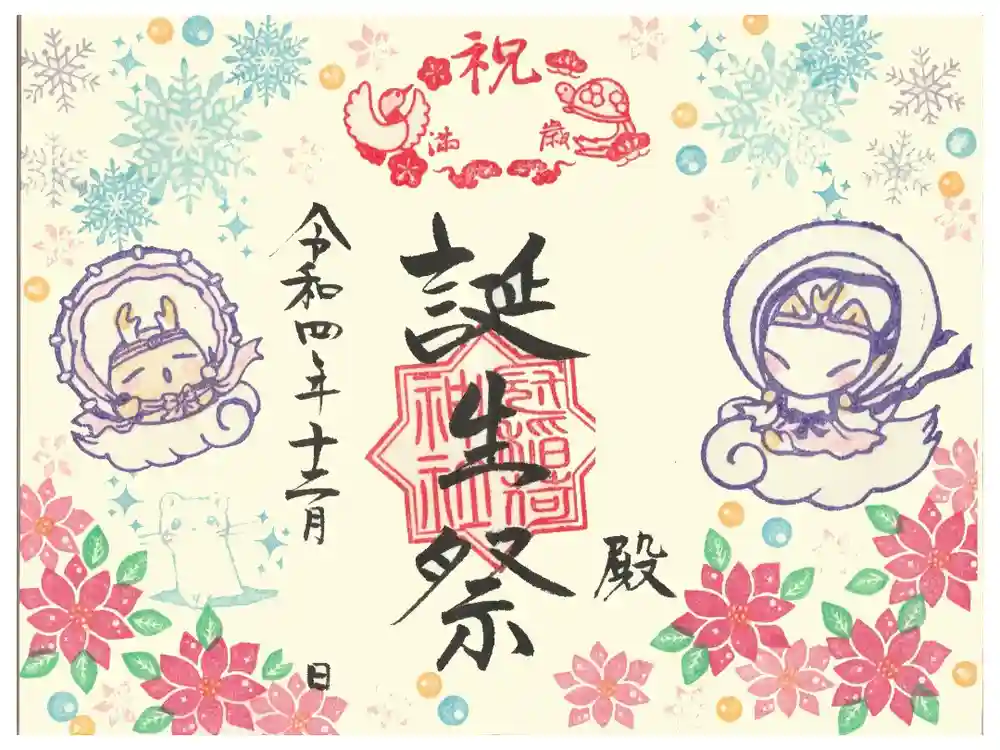 祝
満 歳
殿
誕生祭
冠稲荷
神社
令和四年十二月 日